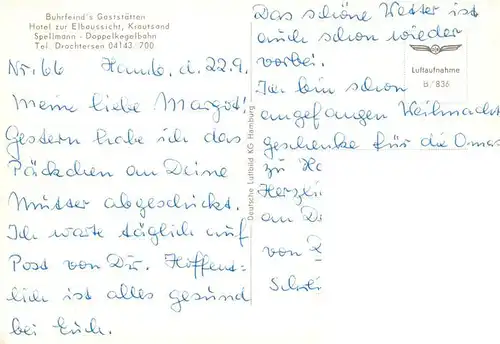 Buhrfeind's Gaststätten
Hotel zur Elbaussicht, Krautsand
Spellmann - Doppelkegelbahn
Tel. Drochtersen 04143/700
Nr. 66 Hamb. d. 22.9.
Meine liebe Margot!
Gestern habe ich das
Päckchen an Deine
Mutter abgeschickt.
Ich warte täglich auf
Post von Dir. Hoffent-
lich ist alles gesund
bei Euch.
Deutsche Luftbild KG Hamburg
Das schöne Wetter ist
auch schon wieder
vorbei.
Ich bin schon
angefangen Weihnacht
geschenke für die Omas
zu
an
von
Luftaufnahme
B. 836